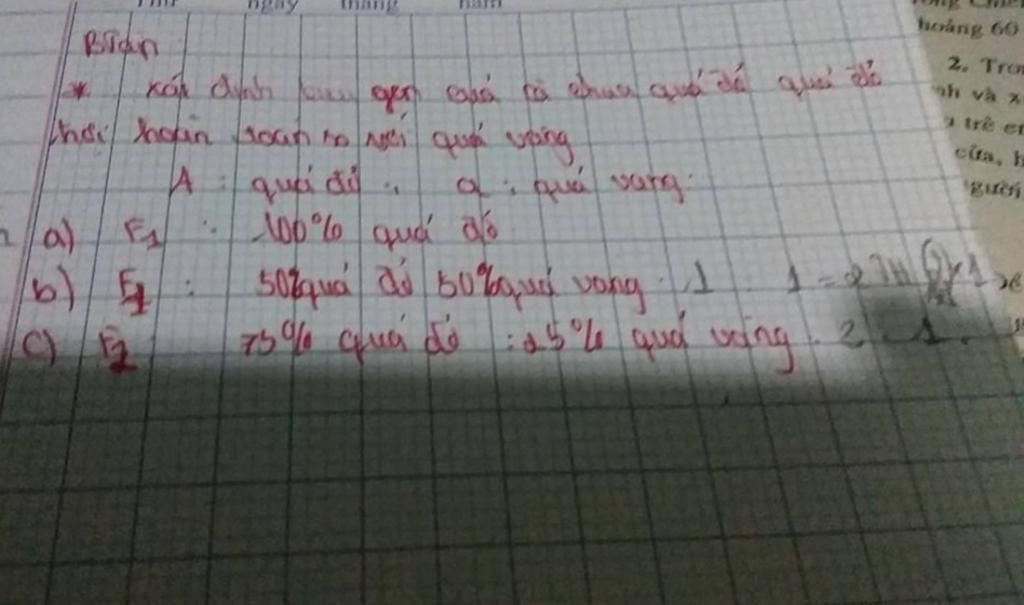 ngày tháng năm
hoảng 60
2. Tro
nh và x
trẻ e
cửa, h
người
* xác định kiểu gen quả cà chua quả đỏ quả đỏ
hoàn toàn so với quả vàng
A : quả đỏ , a : quả vang
a) F1 : 100% quả đỏ
b) F1 : 50% quả đỏ 50% quả vang 1 1 = 2
c) F2 75% quả đỏ : 25% quả vàng 2 1